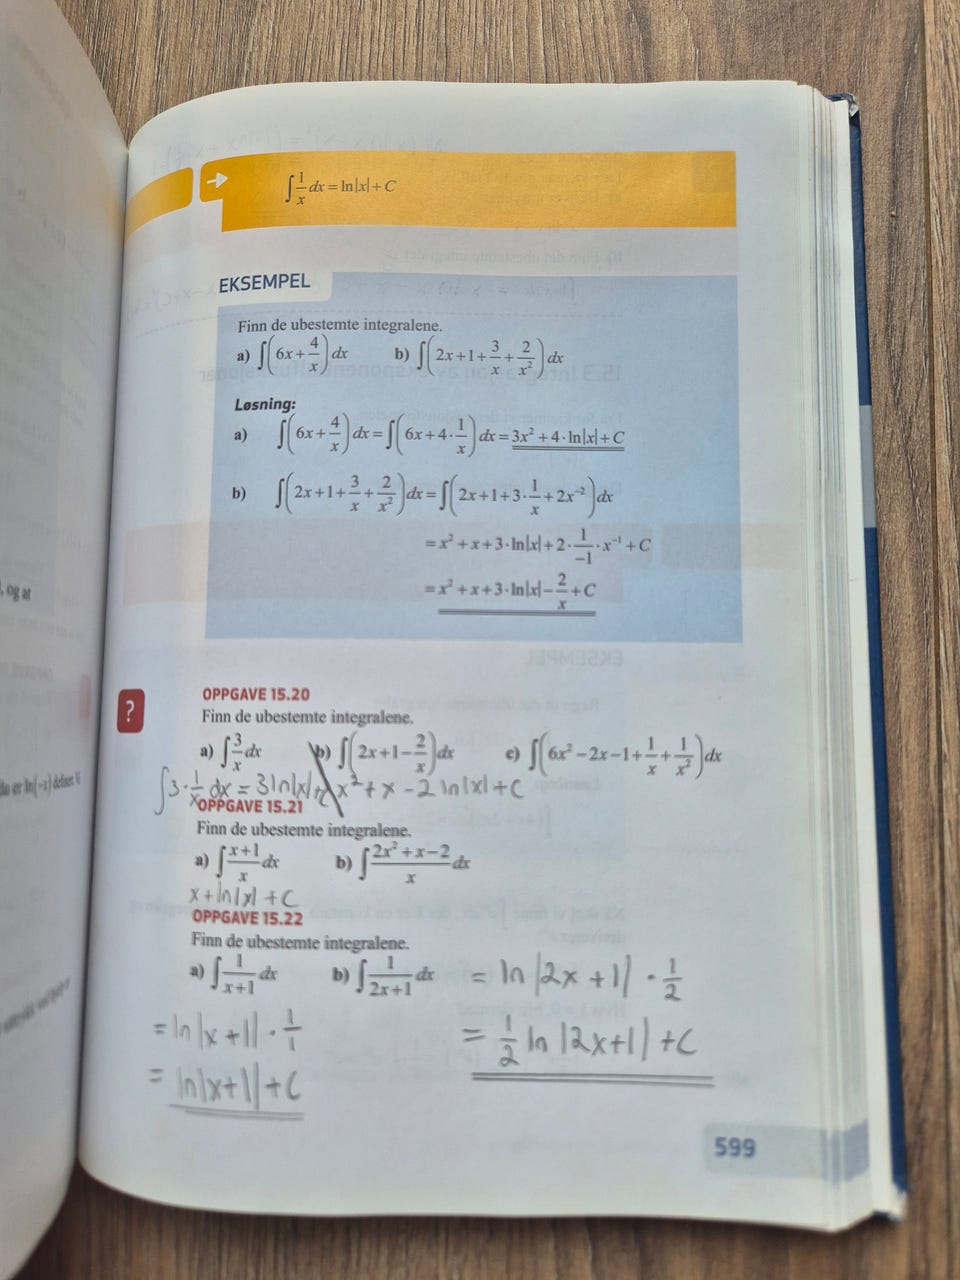 ∫ 1/x dx = ln|x| + C
EKSEMPEL
Finn de ubestemte integralene.
a) ∫(6x + 4/x) dx b) ∫(2x + 1 + 3/x + 2/x²) dx
Løsning:
a) ∫(6x + 4/x) dx = ∫(6x + 4 · 1/x) dx = 3x² + 4 · ln|x| + C
b) ∫(2x + 1 + 3/x + 2/x²) dx = ∫(2x + 1 + 3 · 1/x + 2x⁻²) dx
= x² + x + 3 · ln|x| + 2 · 1/−1 · x⁻¹ + C
= x² + x + 3 · ln|x| − 2/x + C
, og at
?
OPPGAVE 15.20
Finn de ubestemte integralene.
a) ∫ 3/x dx b) ∫(2x + 1 − 2/x) dx c) ∫(6x² − 2x − 1 + 1/x + 1/x²) dx
∫ 3 · 1/x dx = 3 ln|x| + C x² + x − 2 ln|x| + C
er ln(−x) definert.
OPPGAVE 15.21
Finn de ubestemte integralene.
a) ∫ (x+1)/x dx b) ∫ (2x² + x − 2)/x dx
x + ln|x| + C
OPPGAVE 15.22
Finn de ubestemte integralene.
a) ∫ 1/(x+1) dx b) ∫ 1/(2x+1) dx = ln|2x + 1| · 1/2
= ln|x + 1| · 1/1 = 1/2 ln|2x+1| + C
= ln|x+1| + C
599